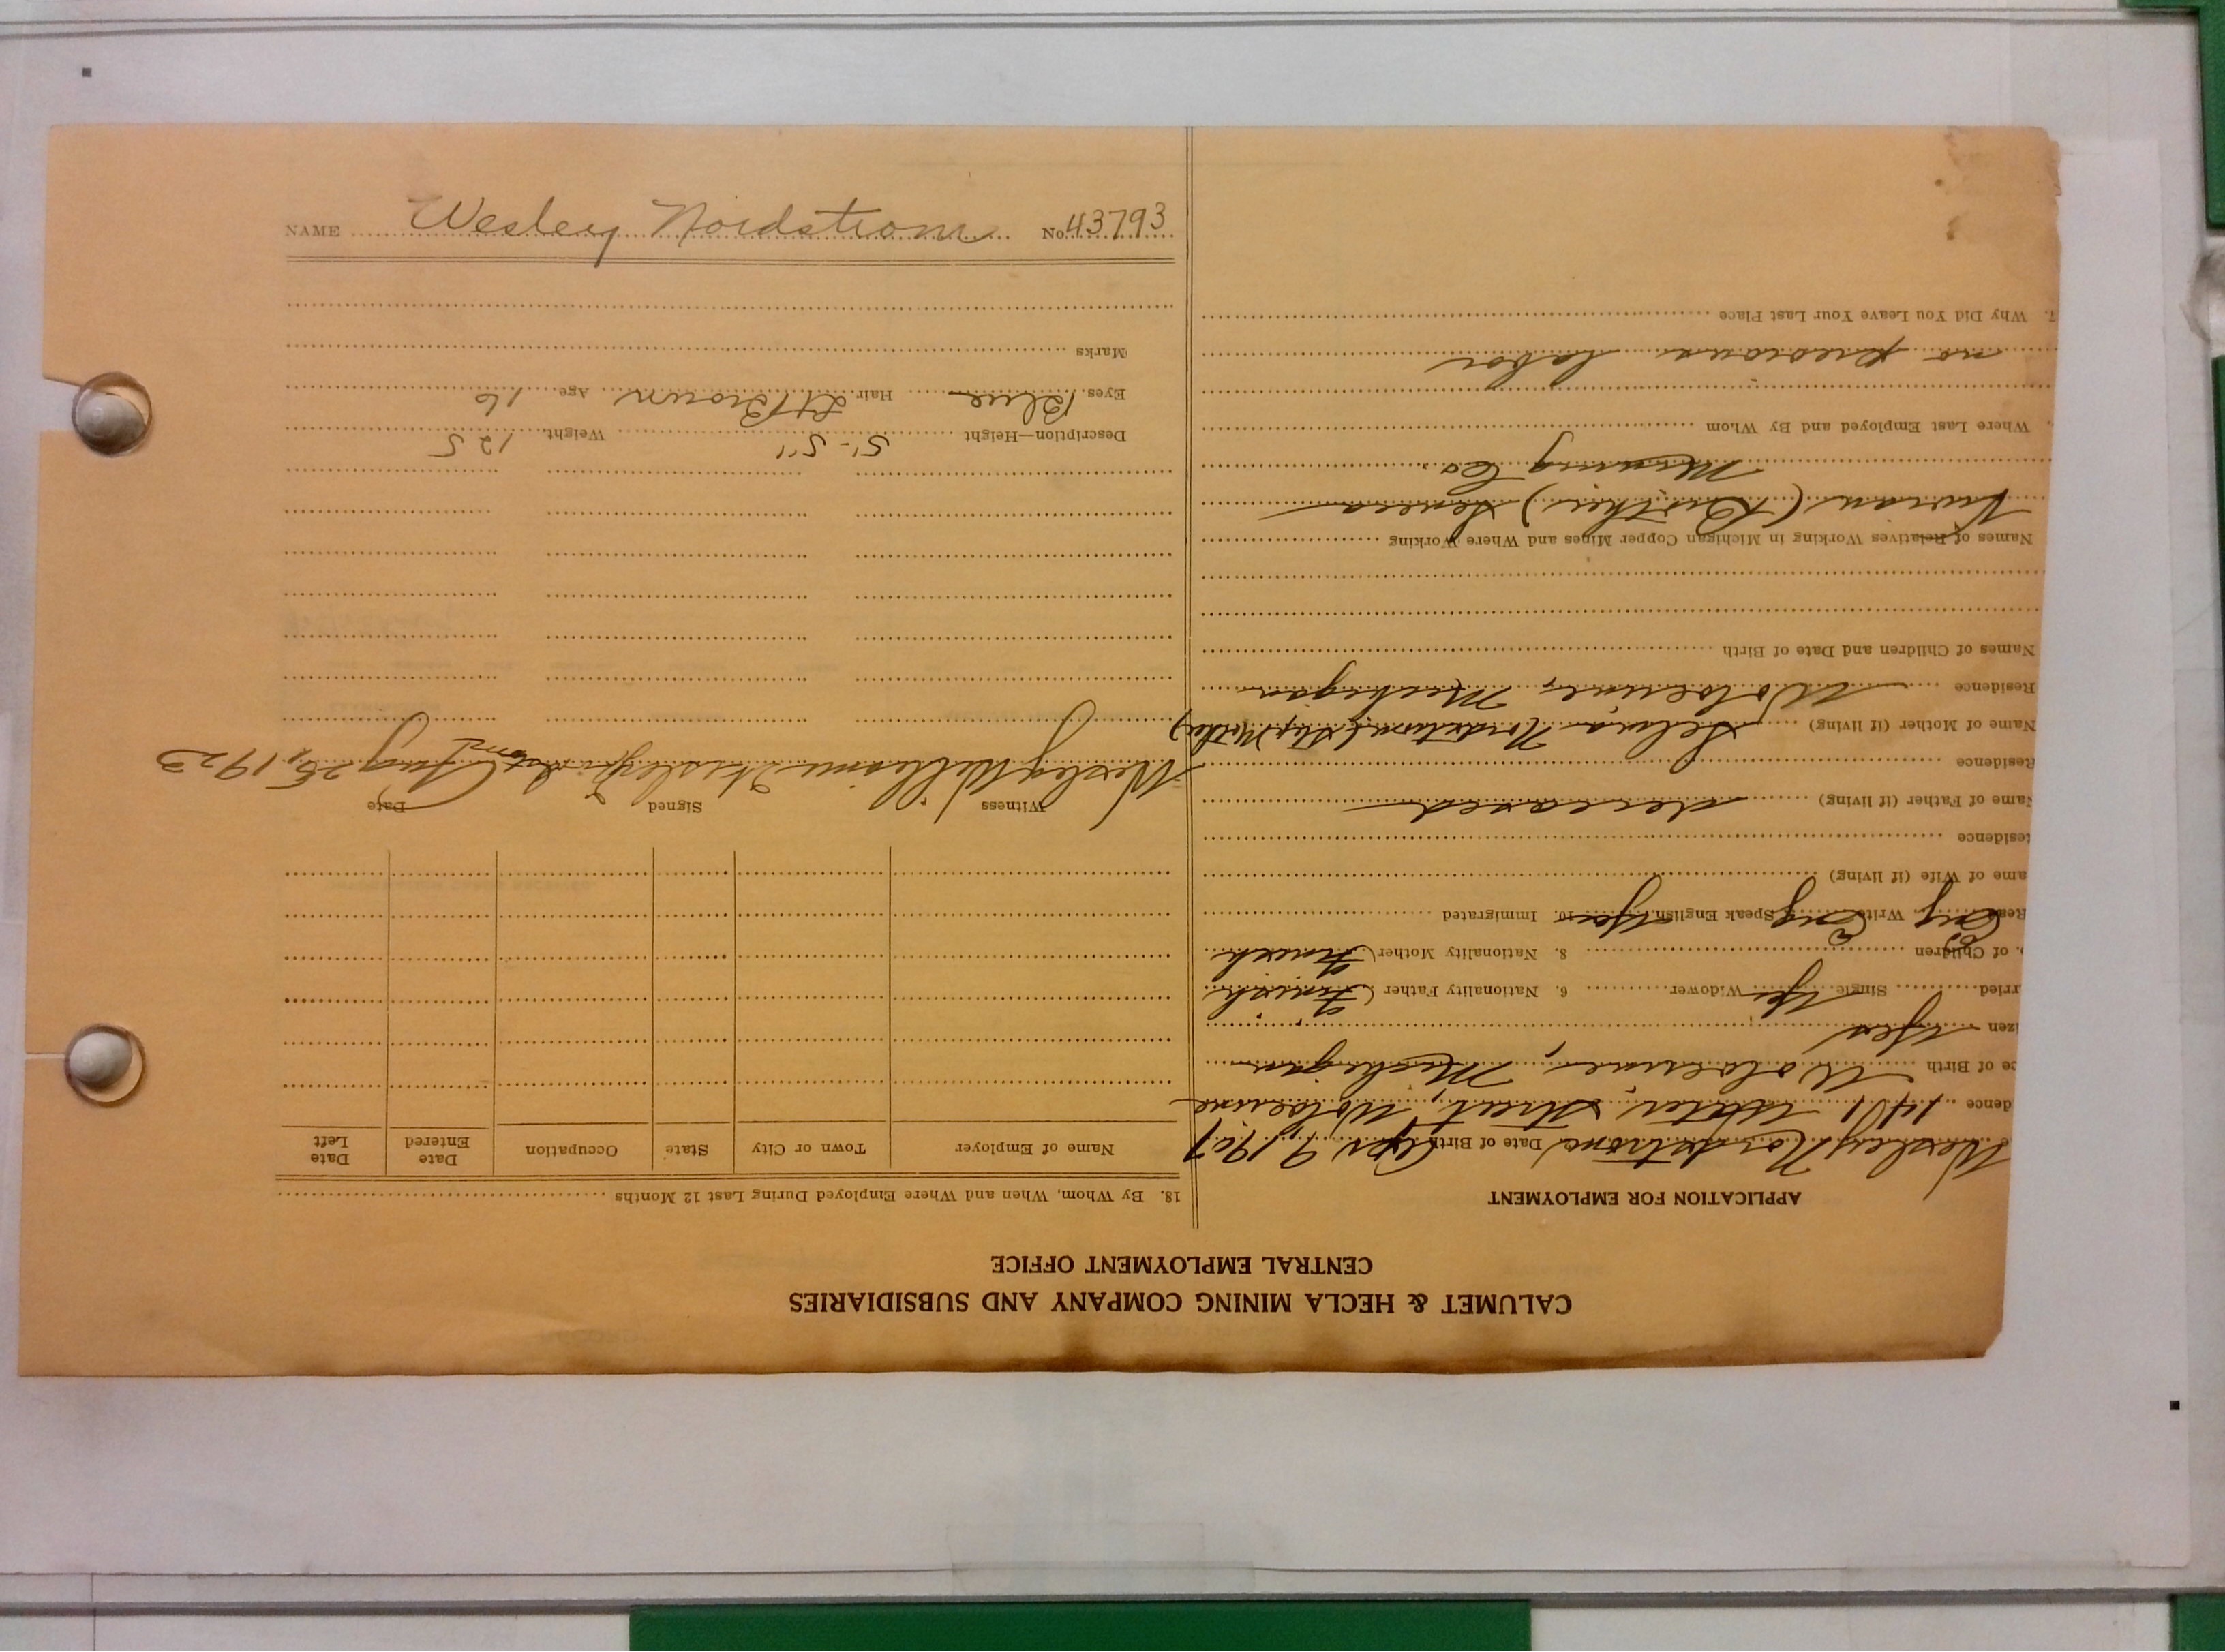 NAME Wesley Nordstrom No. 43793
CALUMET & HECLA MINING COMPANY AND SUBSIDIARIES
CENTRAL EMPLOYMENT OFFICE
APPLICATION FOR EMPLOYMENT
e Wesley Nordstrom Date of Birth Apr 9 1907
dence 1401 Water Street, Wolverine
ce of Birth Wolverine, Michigan
izen Yes
rried Single Yes Widower 6. Nationality Father Finnish
. of Children 8. Nationality Mother Finnish
Read Eng Write Eng Speak English Yes 10. Immigrated
ame of Wife (if living)
esidence
Name of Father (if living) deceased
Residence
Name of Mother (if living) Selma Nordstrom (Step Mother)
Residence Wolverine, Michigan
Names of Children and Date of Birth
Names of Relatives Working in Michigan Copper Mines and Where Working
(Brother) Seneca
Mining Co.
Where Last Employed and By Whom
no previous labor
7. Why Did You Leave Your Last Place
18. By Whom, When and Where Employed During Last 12 Months
Name of Employer Town or City State Occupation Date Entered Date Left
Witness Signed Date
Wesley Williams Wesley Nordstrom Aug 25, 1923
Description—Height 5'-5" Weight 125
Eyes Blue Hair Lt. Brown Age 16
Marks